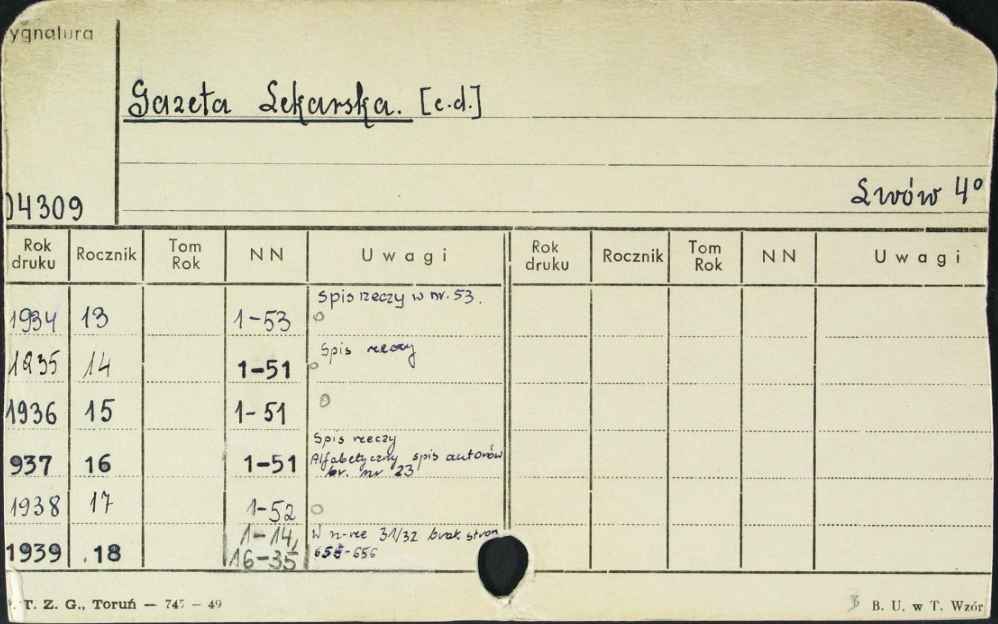 ygnatura
Gazeta Lekarska. [c.d.]
Lwów 4°
04309
Rok druku Rocznik Tom Rok NN Uwagi Rok druku Rocznik Tom Rok NN Uwagi
Spis rzeczy w nr. 53.
1934 13 1-53 o
1935 14 1-51 o Spis rzeczy
1936 15 1-51 o
Spis rzeczy
937 16 1-51 Alfabetyczny spis autorów
br. nr 23
1938 17 1-52 o
1-14, W n-rze 31/32 brak stron
1939 .18 16-35 655-656
. T. Z. G., Toruń — 747 — 49
3 B. U. w T. Wzór